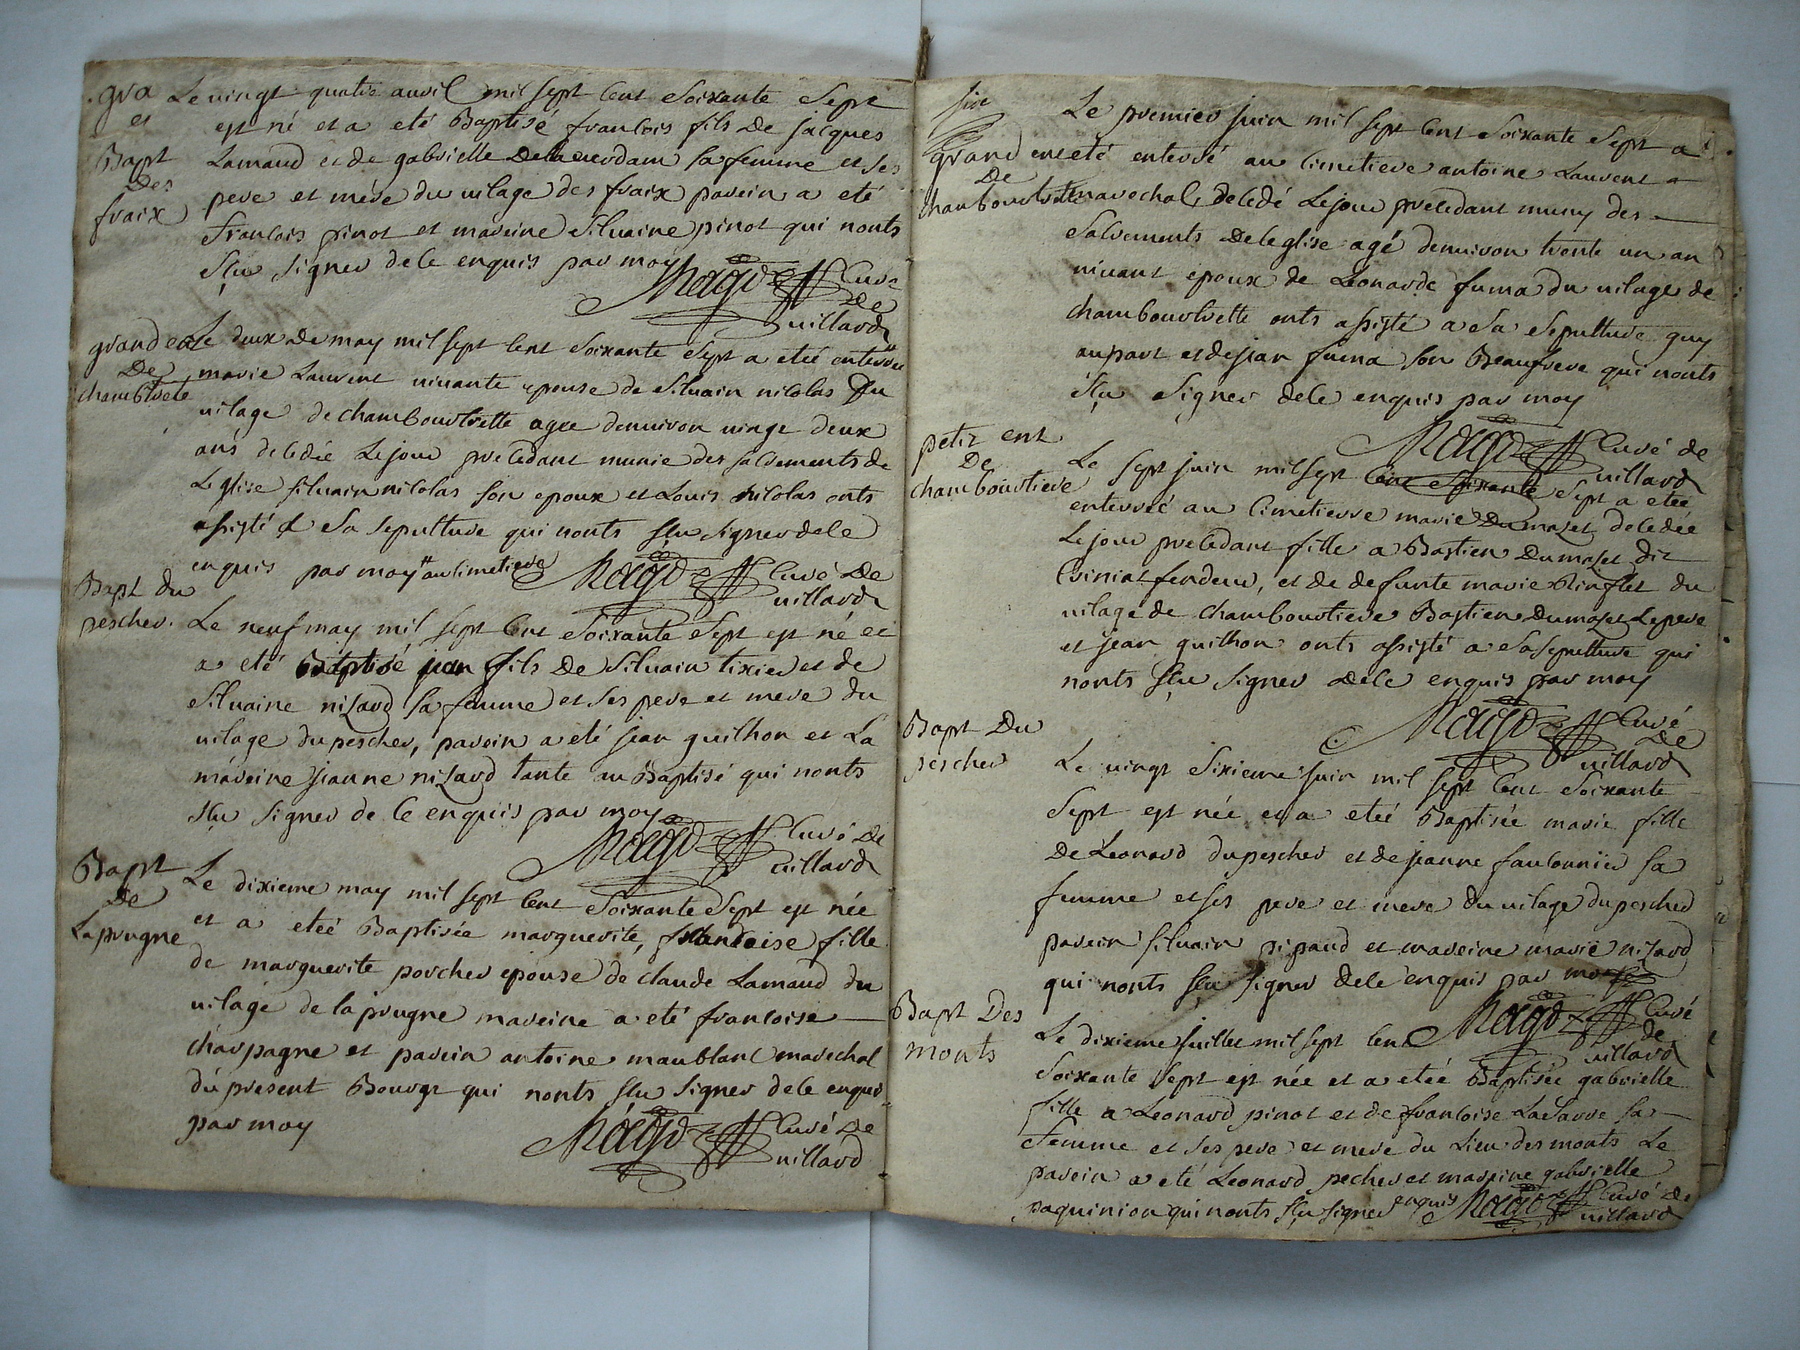 gra
et
Bapt
Des
fraix
Le vingt quatre auril mil sept Cent Soixante Sept
est né et a eté Baptisé francois fils De jacques
Lamaud et de gabrielle sa femme et ses
pere et mére du uilage des fraix parein a eté
francois pinot et mareine Siluaine pinot qui nonts
sçu signer de ce enquis par moy
Curé
De
uillard
grand en
De
chambtrete
Le deux De may mil sept Cent Soixante Sept a etée enterrée
marie Laurent uiuante epouse de Siluain nicolas Du
uilage de chambourtrette agée denuiron uingt deux
ans decedée Le jour precedant munie des sacrements de
Leglise siluain nicolas son epoux et Louis nicolas onts
assisté a Sa sepulture qui nonts sçu signer de ce
enquis par moy au cimetiere
Curé De
uillard
Bapt du
pescher.
Le neuf may mil sept Cent Soixante Sept est né et
a eté Baptisé jean fils De Siluain tixier et de
Siluaine nizard sa femme et ses pere et mere du
uilage du pescher, parein a eté jean guilhon et La
mareine jeanne nizard tante au Baptisé qui nonts
sçu signer de ce enquis par moy
Curé De
uillard
Bapt
De
Laprugne
Le dixieme may mil sept Cent Soixante Sept est née
et a etée Baptisée marguerite, francoise fille
de marguerite porcher epouse de claude Lamaud du
uilage de laprugne mareine a eté francoise
charpagne et parein antoine maublanc marechal
du present Bourgt qui nonts sçu signer de ce enquis
par moy
Curé De
uillard
grand ent
De
chambourtrette
Le premier juin mil sept Cent Soixante Sept a
eté enterré au Cimetiere antoine Laurent
marechal, decedé Le jour precedant muny des
Sacrements De leglise agé denuiron trente un an
uiuant epoux de Leonarde fuma du uilage de
chambourtrette onts assisté a Sa Sepulture guy
aupart et de jean fuma son Beaufrere qui nonts
sçu Signer de ce enquis par moy
Curé de
uillard
petit ent
De
chambourtiere
Le sept juin mil sept Cent Soixante Sept a etée
enterrée au Cimetierre marie Dumaset decedée
Le jour precedant fille a Bastien Dumaset dit
fendeur, et de defunte marie du
uilage de chambourtiere Bastien Dumaset Le pere
et jean guilhon onts assisté a Sa Sepulture qui
nonts sçu signer de ce enquis par moy
Curé
De
uillard
Bapt Du
pescher
Le uingt Sixieme juin mil sept Cent Soixante
Sept est née et a etée Baptisée marie fille
De Leonard dupescher et de jeanne sa
femme et ses pere et mere du uilage dupescher
parein siluain pipaud et mareine marie nizard
qui nonts sçu signer de ce enquis par moy
Curé
de
uillard
Bapt Des
monts
Le dixieme juillet mil sept Cent
Soixante Sept est née et a etée Baptisée gabrielle
fille a Leonard pinot et de francoise Lasarre sa
femme et ses pere et mere du Lieu des monts Le
parein a eté Leonard pecher et mareine gabrielle
paquinion qui nonts sçu signer enquis
Curé de
uillard